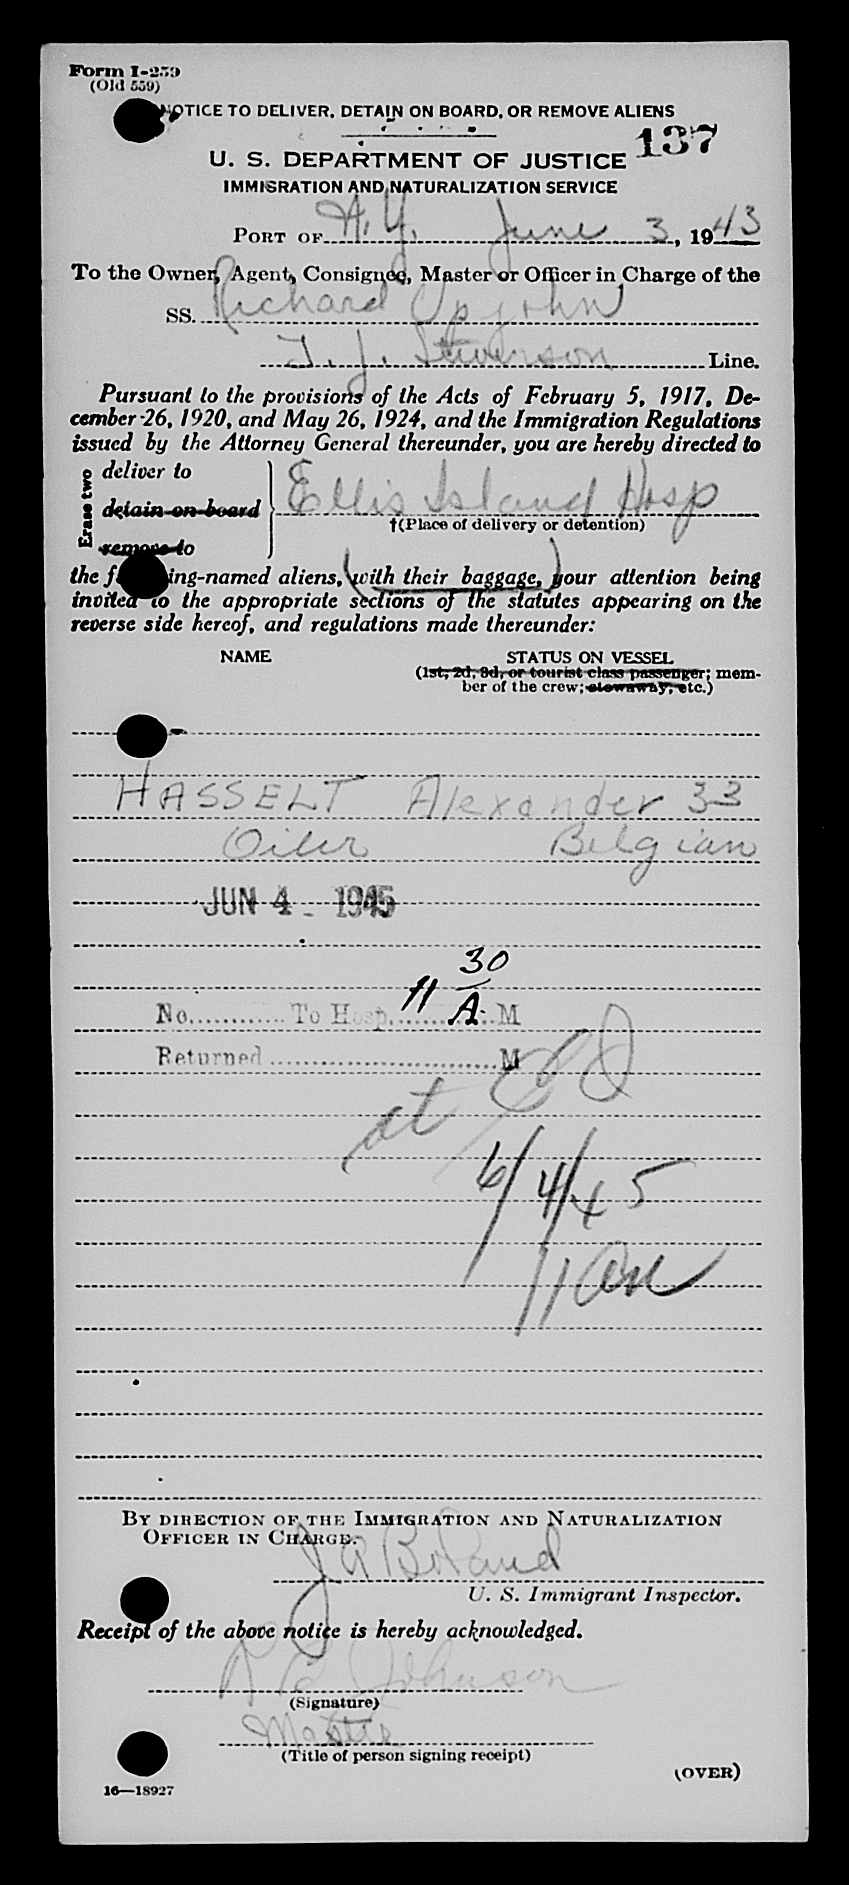 Form I-259
(Old 559)
NOTICE TO DELIVER, DETAIN ON BOARD, OR REMOVE ALIENS
137
U. S. DEPARTMENT OF JUSTICE
IMMIGRATION AND NATURALIZATION SERVICE
PORT OF N.Y. June 3, 1943
To the Owner, Agent, Consignee, Master or Officer in Charge of the
SS. Richard Upjohn
T. J. Stevenson Line.
Pursuant to the provisions of the Acts of February 5, 1917, De-
cember 26, 1920, and May 26, 1924, and the Immigration Regulations
issued by the Attorney General thereunder, you are hereby directed to
Erase two
deliver to
detain on board
remove to
Ellis Island Hosp
†(Place of delivery or detention)
the ing-named aliens, (with their baggage,) your attention being
invited to the appropriate sections of the statutes appearing on the
reverse side hereof, and regulations made thereunder:
NAME STATUS ON VESSEL
(1st, 2d, 3d, or tourist class passenger; mem-
ber of the crew; stowaway, etc.)
HASSELT Alexander 33
Oiler Belgian
JUN 4 - 1945
No. To Hosp. 11 30 A. M
Returned M
at
6/4/45
11 am
BY DIRECTION OF THE IMMIGRATION AND NATURALIZATION
OFFICER IN CHARGE.
J A Boland
U. S. Immigrant Inspector.
Receipt of the above notice is hereby acknowledged.
Johnson
(Signature)
Master
(Title of person signing receipt)
(OVER)
16—18927